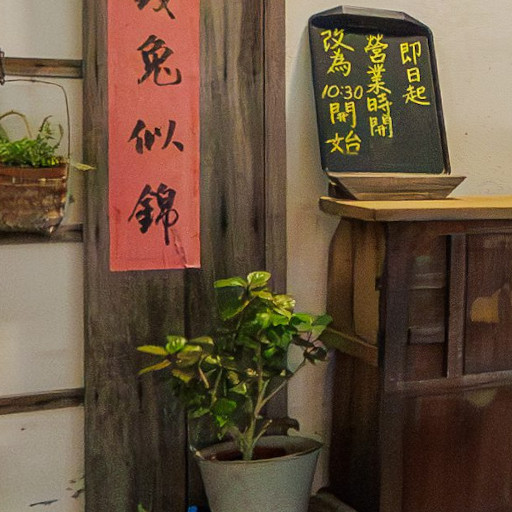 兔似錦
即日起
營業時間
改為10:30開始